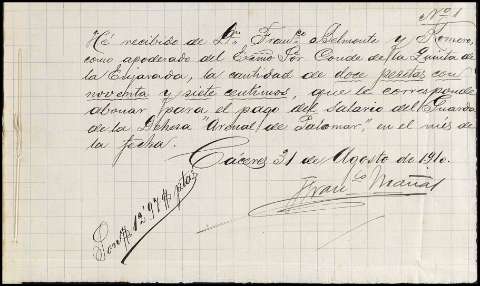 Nº 1
He recibido de Dn. Franco. Belmonte y Romero,
como apoderado del Exmo Sor Conde de la Quinta de
la Enjarada, la cantidad de doce pesetas con
noventa y siete centimos, que le corresponde
abonar para el pago del salario del Guarda
de la Dehesa "Arenal de Palomar", en el més de
la fecha.
Cáceres 31 de Agosto de 1910.
Son # 12'97 # ptas